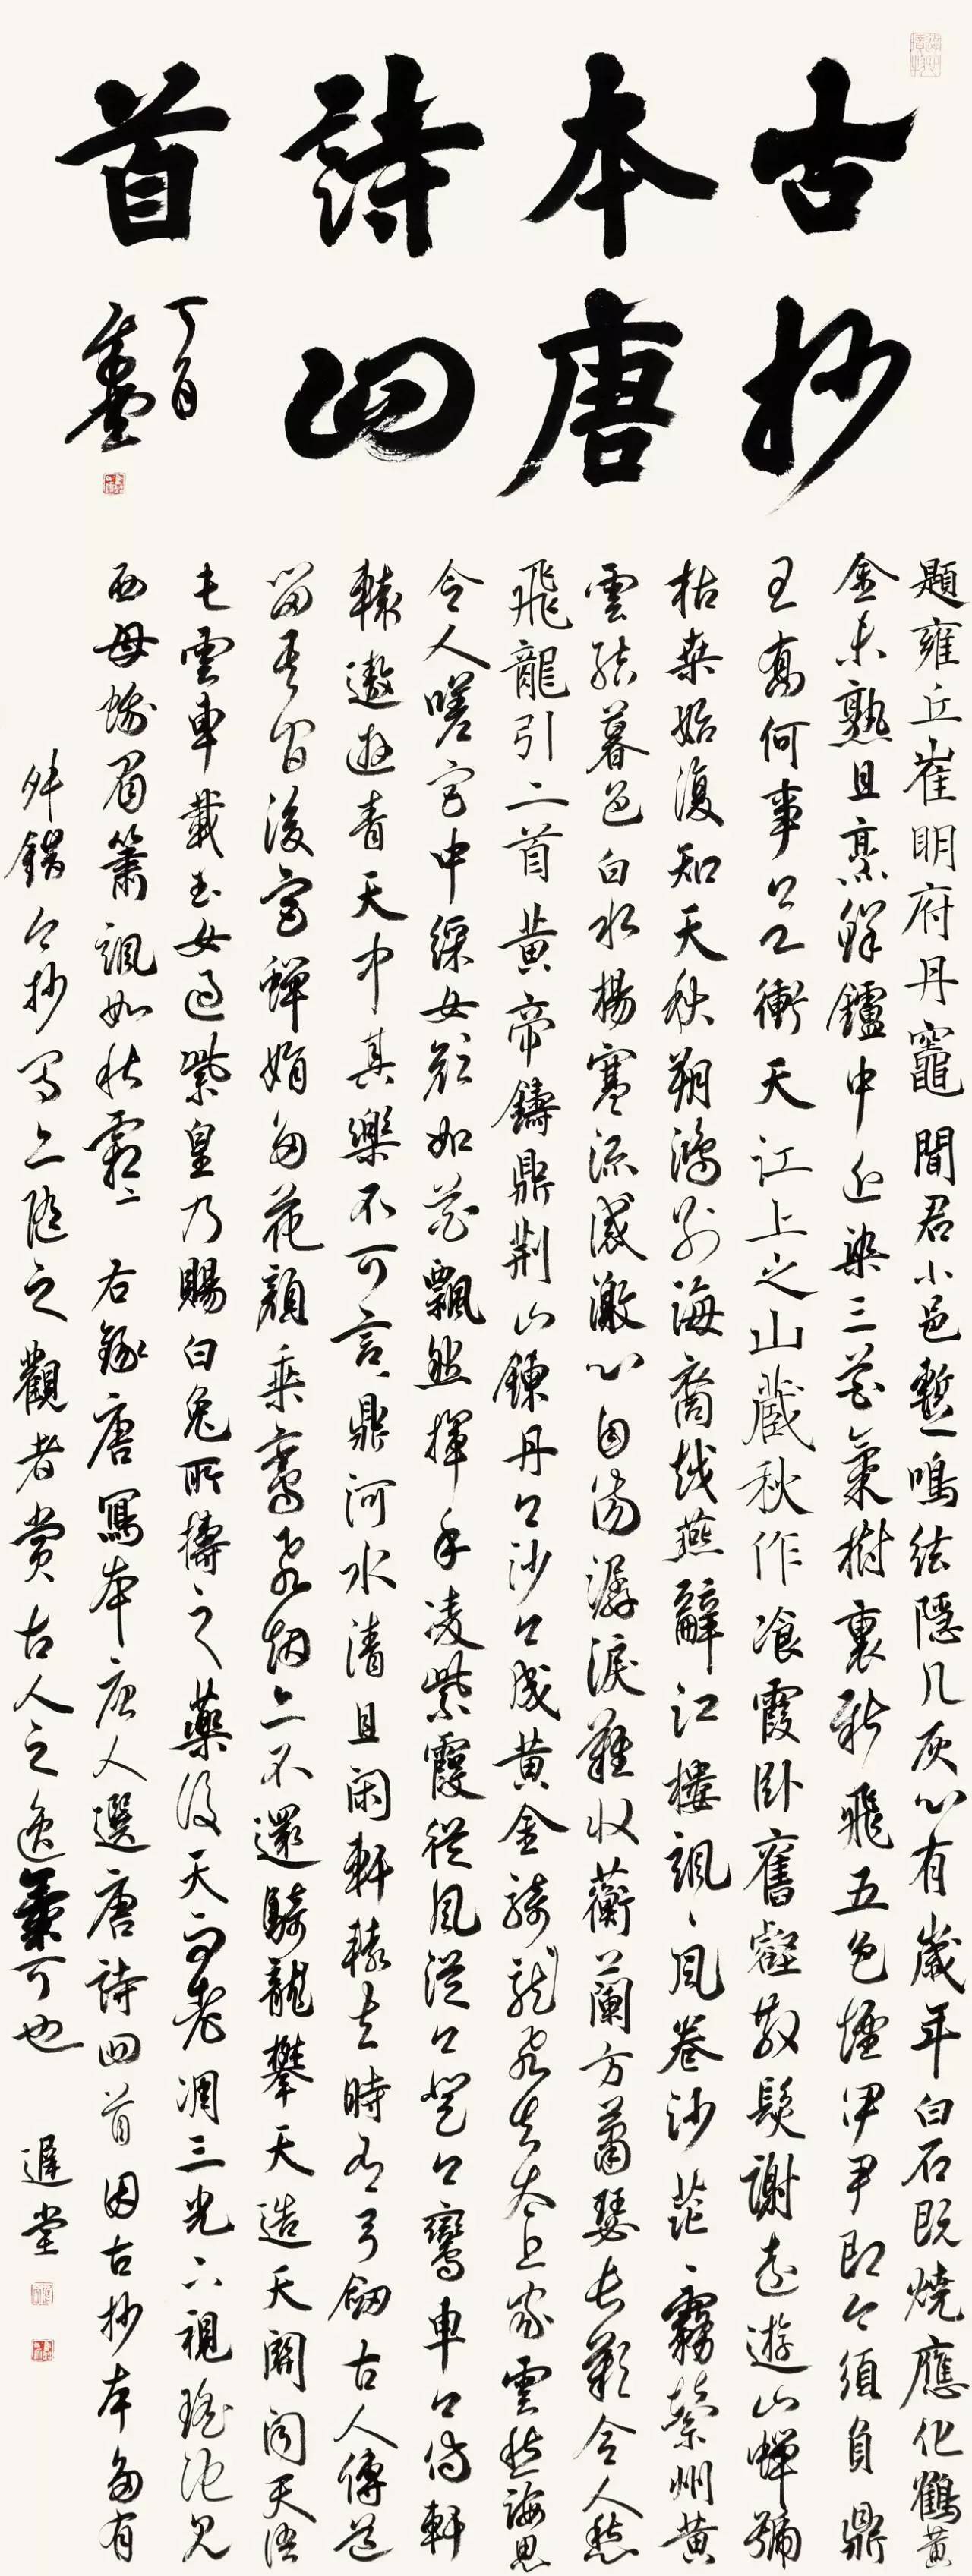 古抄
本唐
詩四
首
丁酉
遲堂
題雍丘崔明府丹竈 聞君小邑暫鳴絃隱几灰心有歲年白石既燒應化鶴黃
金未熟且烹鮮鑪中近染三花氣樹裏新飛五色煙伊尹即今須負鼎
王喬何事衝天 江上之山藏秋作 飡霞卧舊壑散髮謝遠遊山蟬號
枯桑始復知天秋朔鴻別海裔越燕辭江樓颯颯風卷沙茫茫霧縈州黃
雲結暮色白水楊寒流感激心自傷潺湲難收蘅蘭方蕭瑟長歎令人愁
飛龍引二首 黃帝鑄鼎荆山鍊丹々沙々成黃金騎龍飛去太上家雲愁海思
令人嗟宮中綵女顏如花飄然揮手凌紫霞從風從々登々鸞車々侍軒
轅遨遊青天中其樂不可言 鼎河水清且閑軒轅去時有弓劒古人傳道
留其間後宮蟬娟多花顏乘鸞飛烟亦不還騎龍攀天造天關聞天語
屯雲車載玉女過紫皇乃賜白兔所擣之藥後天而老凋三光下視瑤池見
西母蛾眉蕭颯如秋霜 右錄唐寫本唐人選唐詩四首因古抄本多有
舛錯今抄寫亦隨之觀者賞古人之逸氣可也 遲堂